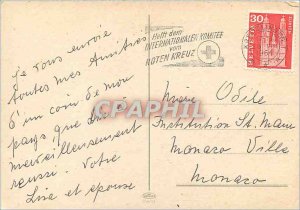 Helft dem
INTERNATIONALEN KOMITEE
vom
ROTEN KREUZ
30
HELVETIA
Je vous envoie
toutes mes Amitiés
d'un coin de mon
pays que
merveilleusement
reussi. Votre
Lise et epouse
Odile
Institution St. Maur
Monaco Ville
Monaco
CPAPHIL